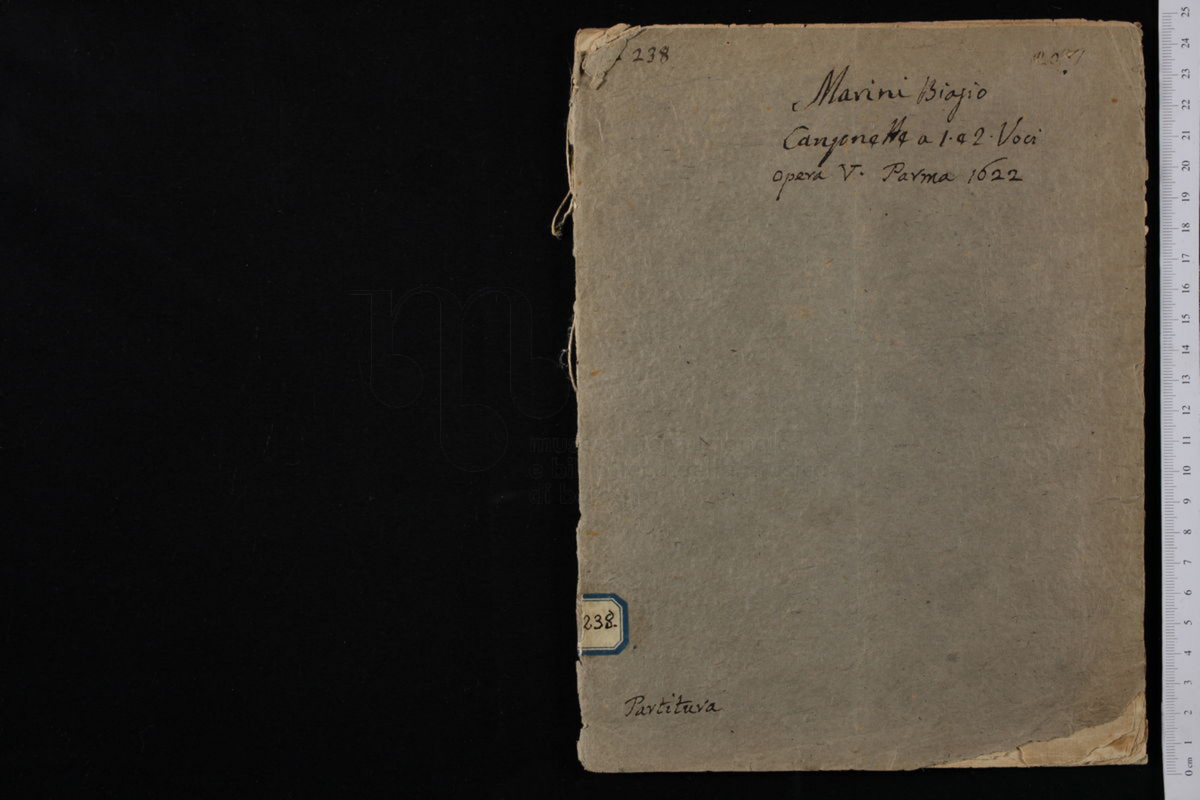 238
Marini Biagio
Canzonette a 1. e 2. Voci
opera V. Parma 1622
238.
Partitura
25
24
23
22
21
20
19
18
17
16
15
14
13
12
11
10
9
8
7
6
5
4
3
2
1
0 cm